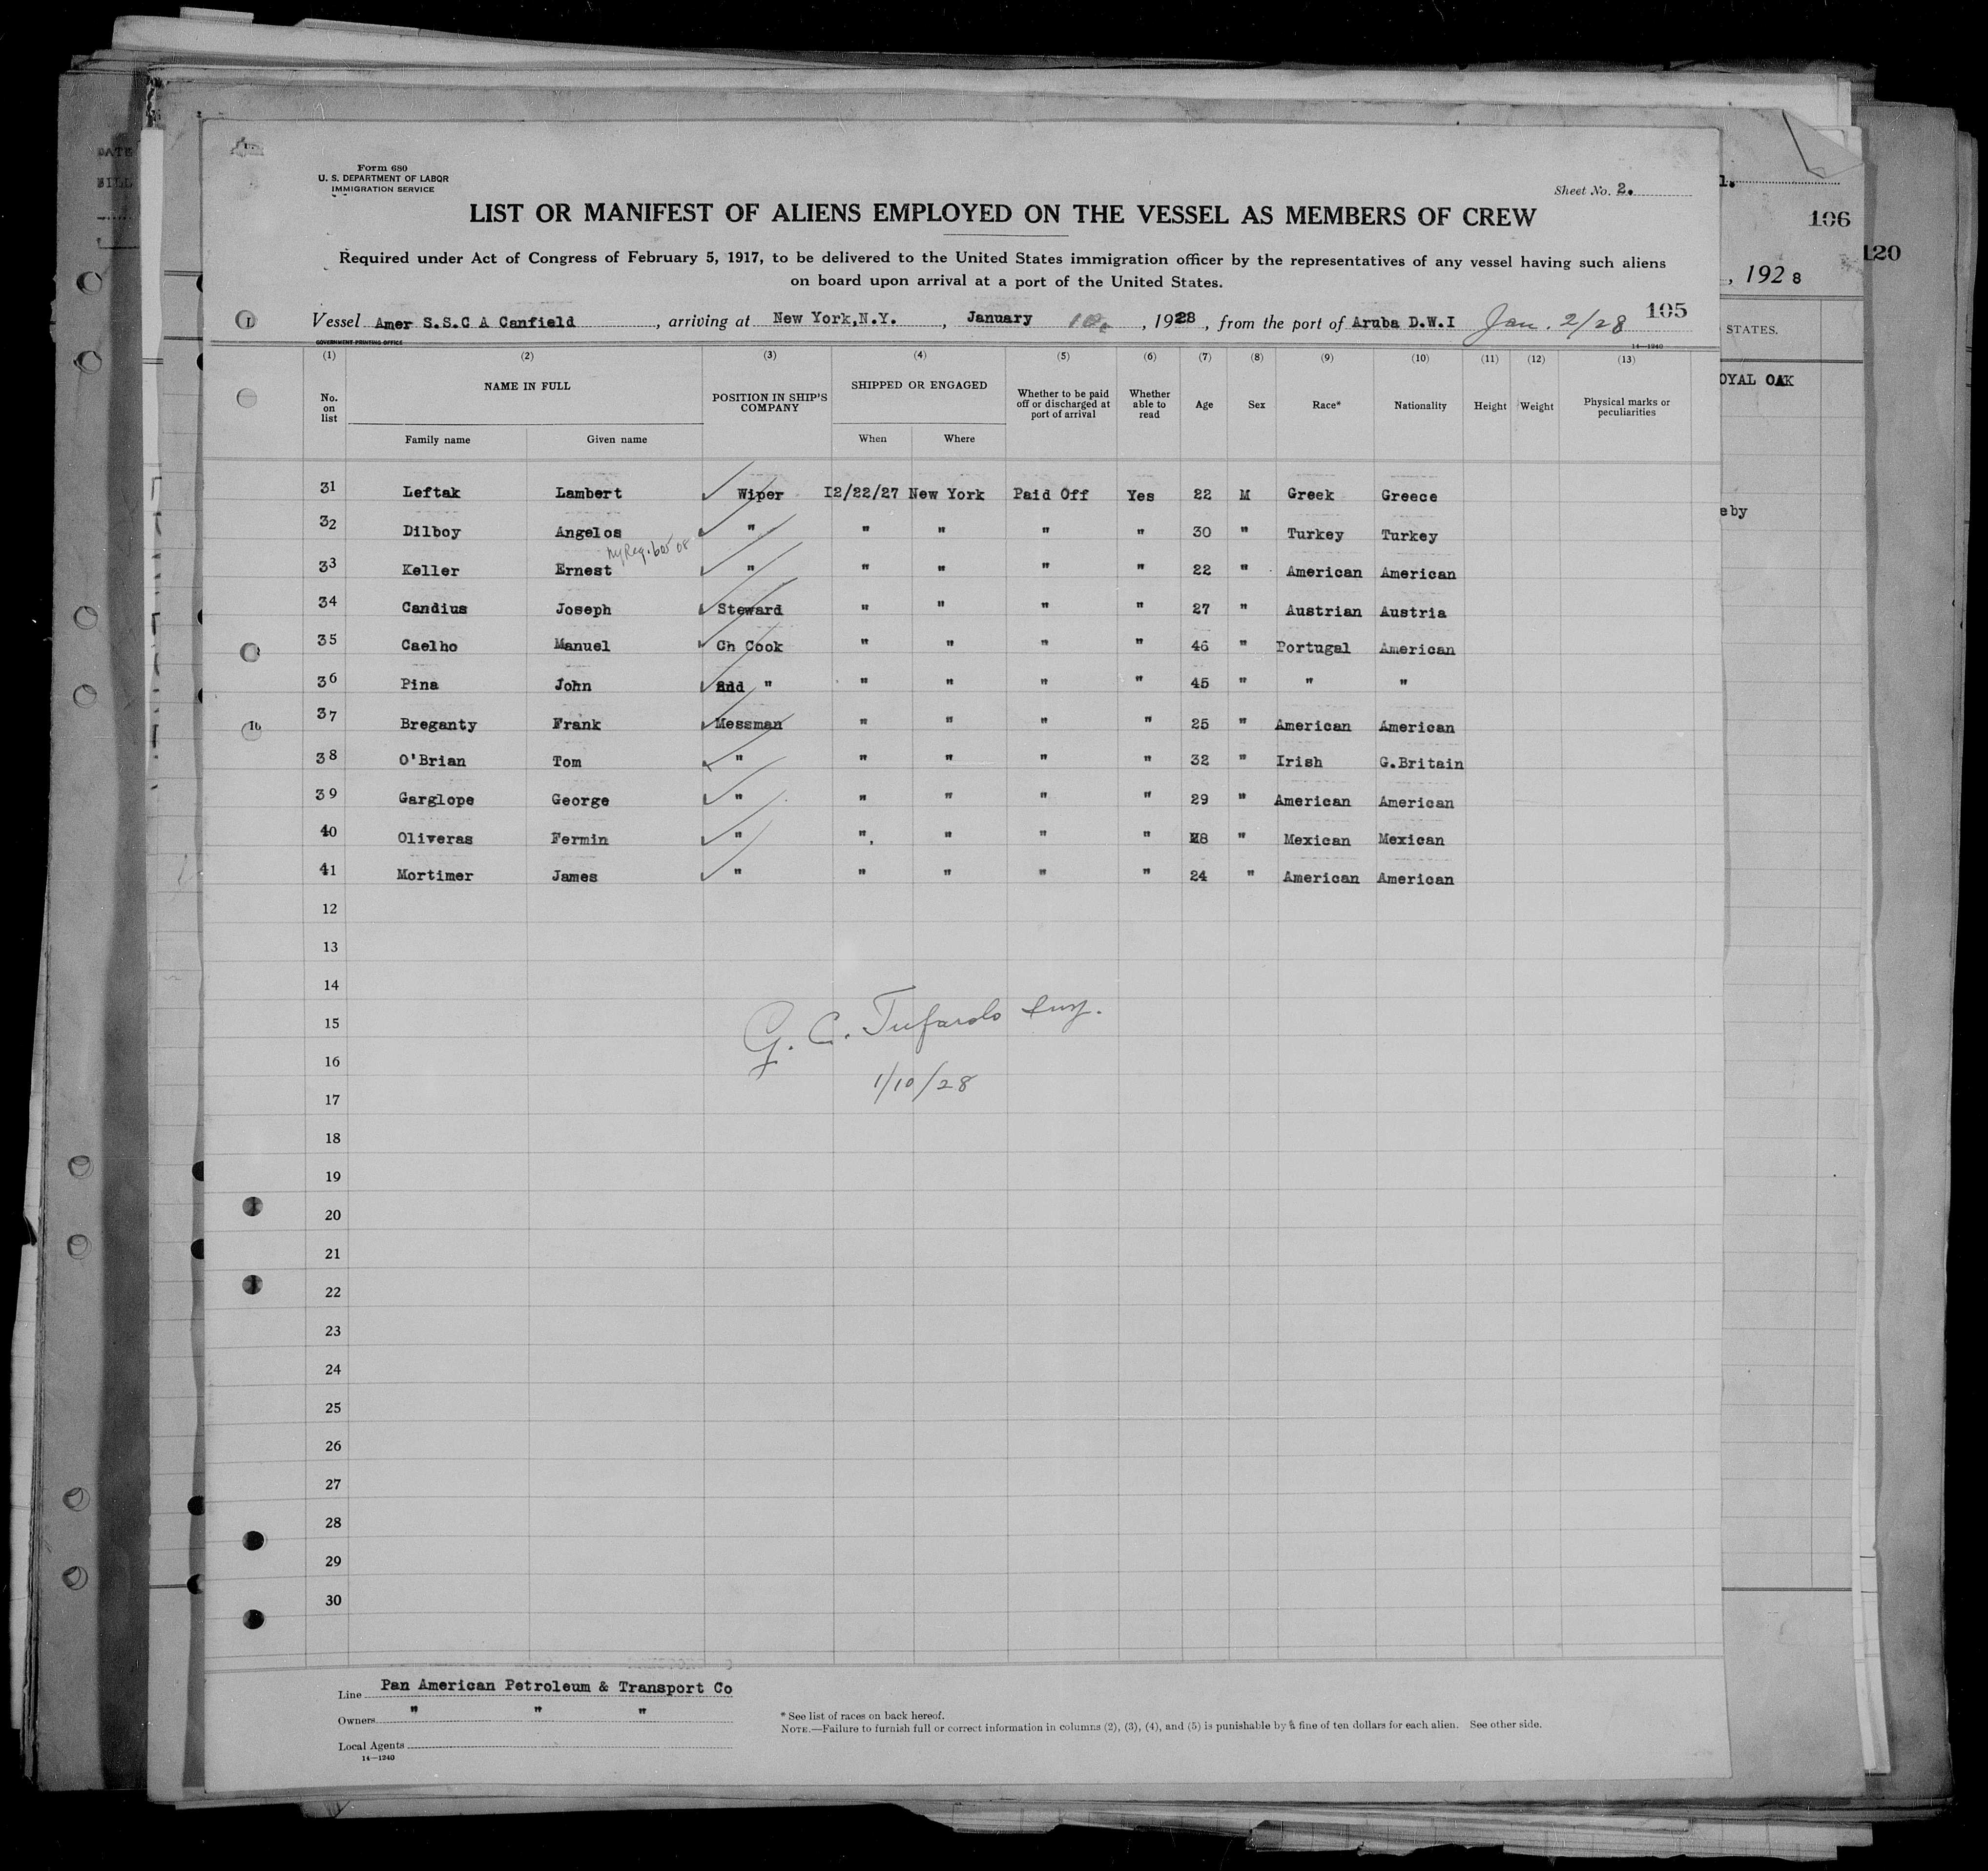 Form 680
U. S. DEPARTMENT OF LABOR
IMMIGRATION SERVICE
Sheet No. 2.
LIST OR MANIFEST OF ALIENS EMPLOYED ON THE VESSEL AS MEMBERS OF CREW
Required under Act of Congress of February 5, 1917, to be delivered to the United States immigration officer by the representatives of any vessel having such aliens
on board upon arrival at a port of the United States.
105
Vessel Amer S.S.C A Canfield, arriving at New York,N.Y., January 10, 1928, from the port of Aruba D.W.I Jan. 2/28
GOVERNMENT PRINTING OFFICE
14—1240
(1) (2) (3) (4) (5) (6) (7) (8) (9) (10) (11) (12) (13)
No. on list NAME IN FULL Family name Given name POSITION IN SHIP'S COMPANY SHIPPED OR ENGAGED When Where Whether to be paid off or discharged at port of arrival Whether able to read Age Sex Race* Nationality Height Weight Physical marks or peculiarities
31 Leftak Lambert Wiper 12/22/27 New York Paid Off Yes 22 M Greek Greece
32 Dilboy Angelos " " " " " 30 " Turkey Turkey
33 Keller Ernest " " " " " 22 " American American
34 Candius Joseph Steward " " " " 27 " Austrian Austria
35 Caelho Manuel Ch Cook " " " " 46 " Portugal American
36 Pina John 2nd " " " " " 45 " " "
37 Breganty Frank Messman " " " " 25 " American American
38 O'Brian Tom " " " " " 32 " Irish G.Britain
39 Garglope George " " " " " 29 " American American
40 Oliveras Fermin " " " " " 28 " Mexican Mexican
41 Mortimer James " " " " " 24 " American American
12
13
14
15
16
17
18
19
20
21
22
23
24
25
26
27
28
29
30
G. C. Tufarolo Insp.
1/10/28
Line Pan American Petroleum & Transport Co
Owners " " "
Local Agents
14—1240
* See list of races on back hereof.
NOTE.—Failure to furnish full or correct information in columns (2), (3), (4), and (5) is punishable by a fine of ten dollars for each alien. See other side.
106
120
, 1928
STATES.
OYAL OAK
eby
DATE